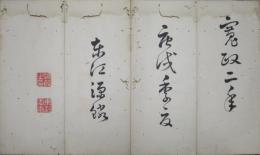 寛政二年
庚戌季夏
東江源鱗